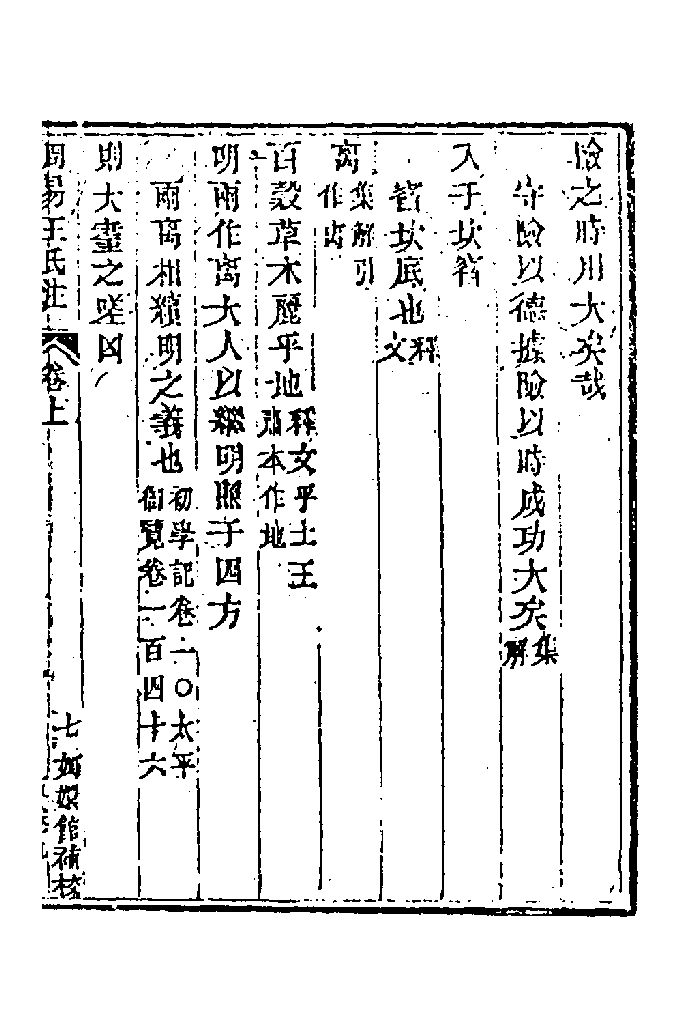 險之時用大矣哉
守險以德據險以時成功大矣集解
入于坎窞
窞坎底也釋文
离集解引作离
百穀草木麗乎地釋文乎土王肅本作地
明兩作离大人以繼明照于四方
兩离相續明之義也初學記卷一〇太平御覽卷一百四十六
則大耋之嗟凶
周易王氏注 卷上
七嫏嬛館補校